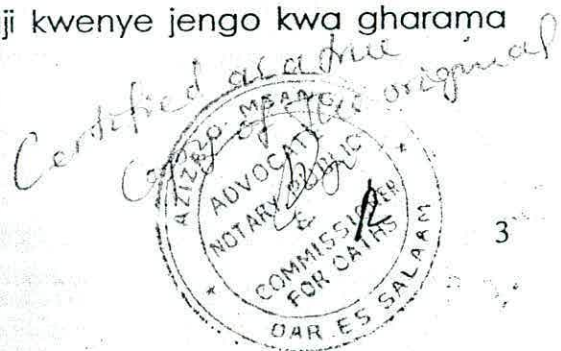 ji kwenye jengo kwa gharama
Certified as a true
Copy of the original
AZIZA O. MSANGI
ADVOCATE
NOTARY PUBLIC
&
COMMISSIONER
FOR OATHS
DAR ES SALAAM
3